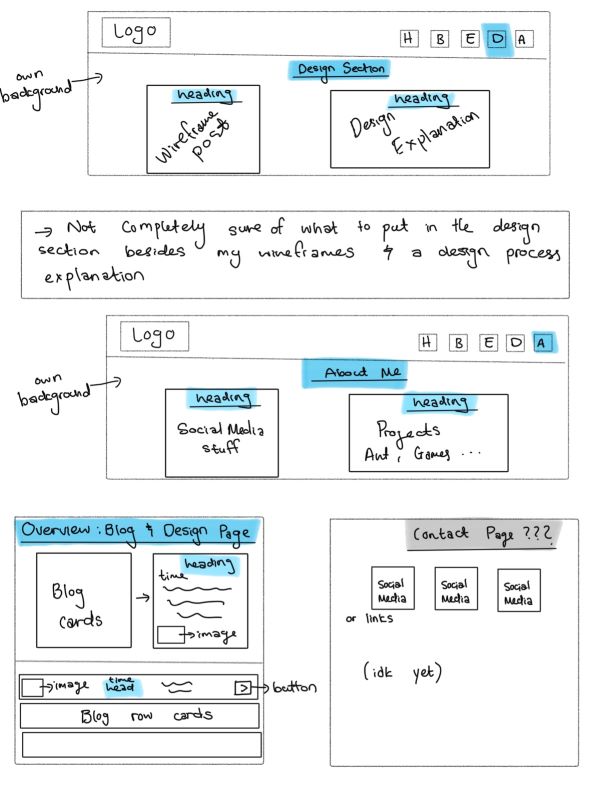 Logo
H B E D A
Design Section
own
background
heading
wireframe
post
heading
Design
Explanation
→ Not completely sure of what to put in the design
section besides my wireframes & a design process
explanation
Logo
H B E D A
About Me
own
background
heading
Social Media
stuff
heading
Projects
Art, Games ...
Overview: Blog & Design Page
Blog
cards
heading
time
image
image
time
head
>
button
Blog row cards
Contact Page ???
Social
Media
Social
Media
Social
Media
or links
(idk yet)